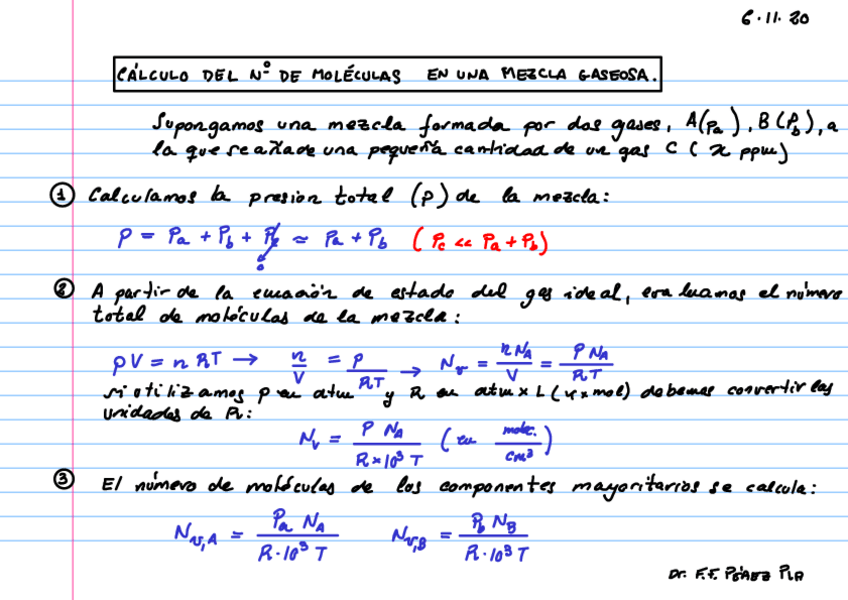 6.11.20
CÁLCULO DEL Nº DE MOLÉCULAS EN UNA MEZCLA GASEOSA.
Supongamos una mezcla formada por dos gases, A(Pa), B(Pb), a
la que se añade una pequeña cantidad de un gas C (x ppm)
① Calculamos la presion total (P) de la mezcla:
P = Pa + Pb + Pc ≃ Pa + Pb (Pc << Pa + Pb)
0
② A partir de la ecuación de estado del gas ideal, evaluamos el número
total de moléculas de la mezcla:
pV = n RT → n/V = P/RT → Nv = n NA/V = P NA/RT
si utilizamos p en atm y R en atm x L (K x mol) debemos convertir las
unidades de R:
Nv = P NA / R x 10³ T (en molec. / cm³)
③ El número de moléculas de los componentes mayoritarios se calcula:
Nv,A = Pa NA / R · 10³ T Nv,B = Pb NB / R · 10³ T
Dr. F.F. PÉREZ PLA